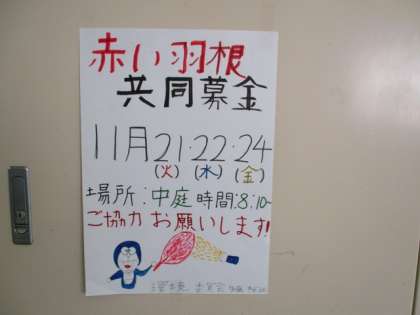 赤い羽根
共同募金
11月21・22・24
(火)(水)(金)
場所:中庭 時間:8:10~
ご協力お願いします!
環境委員会